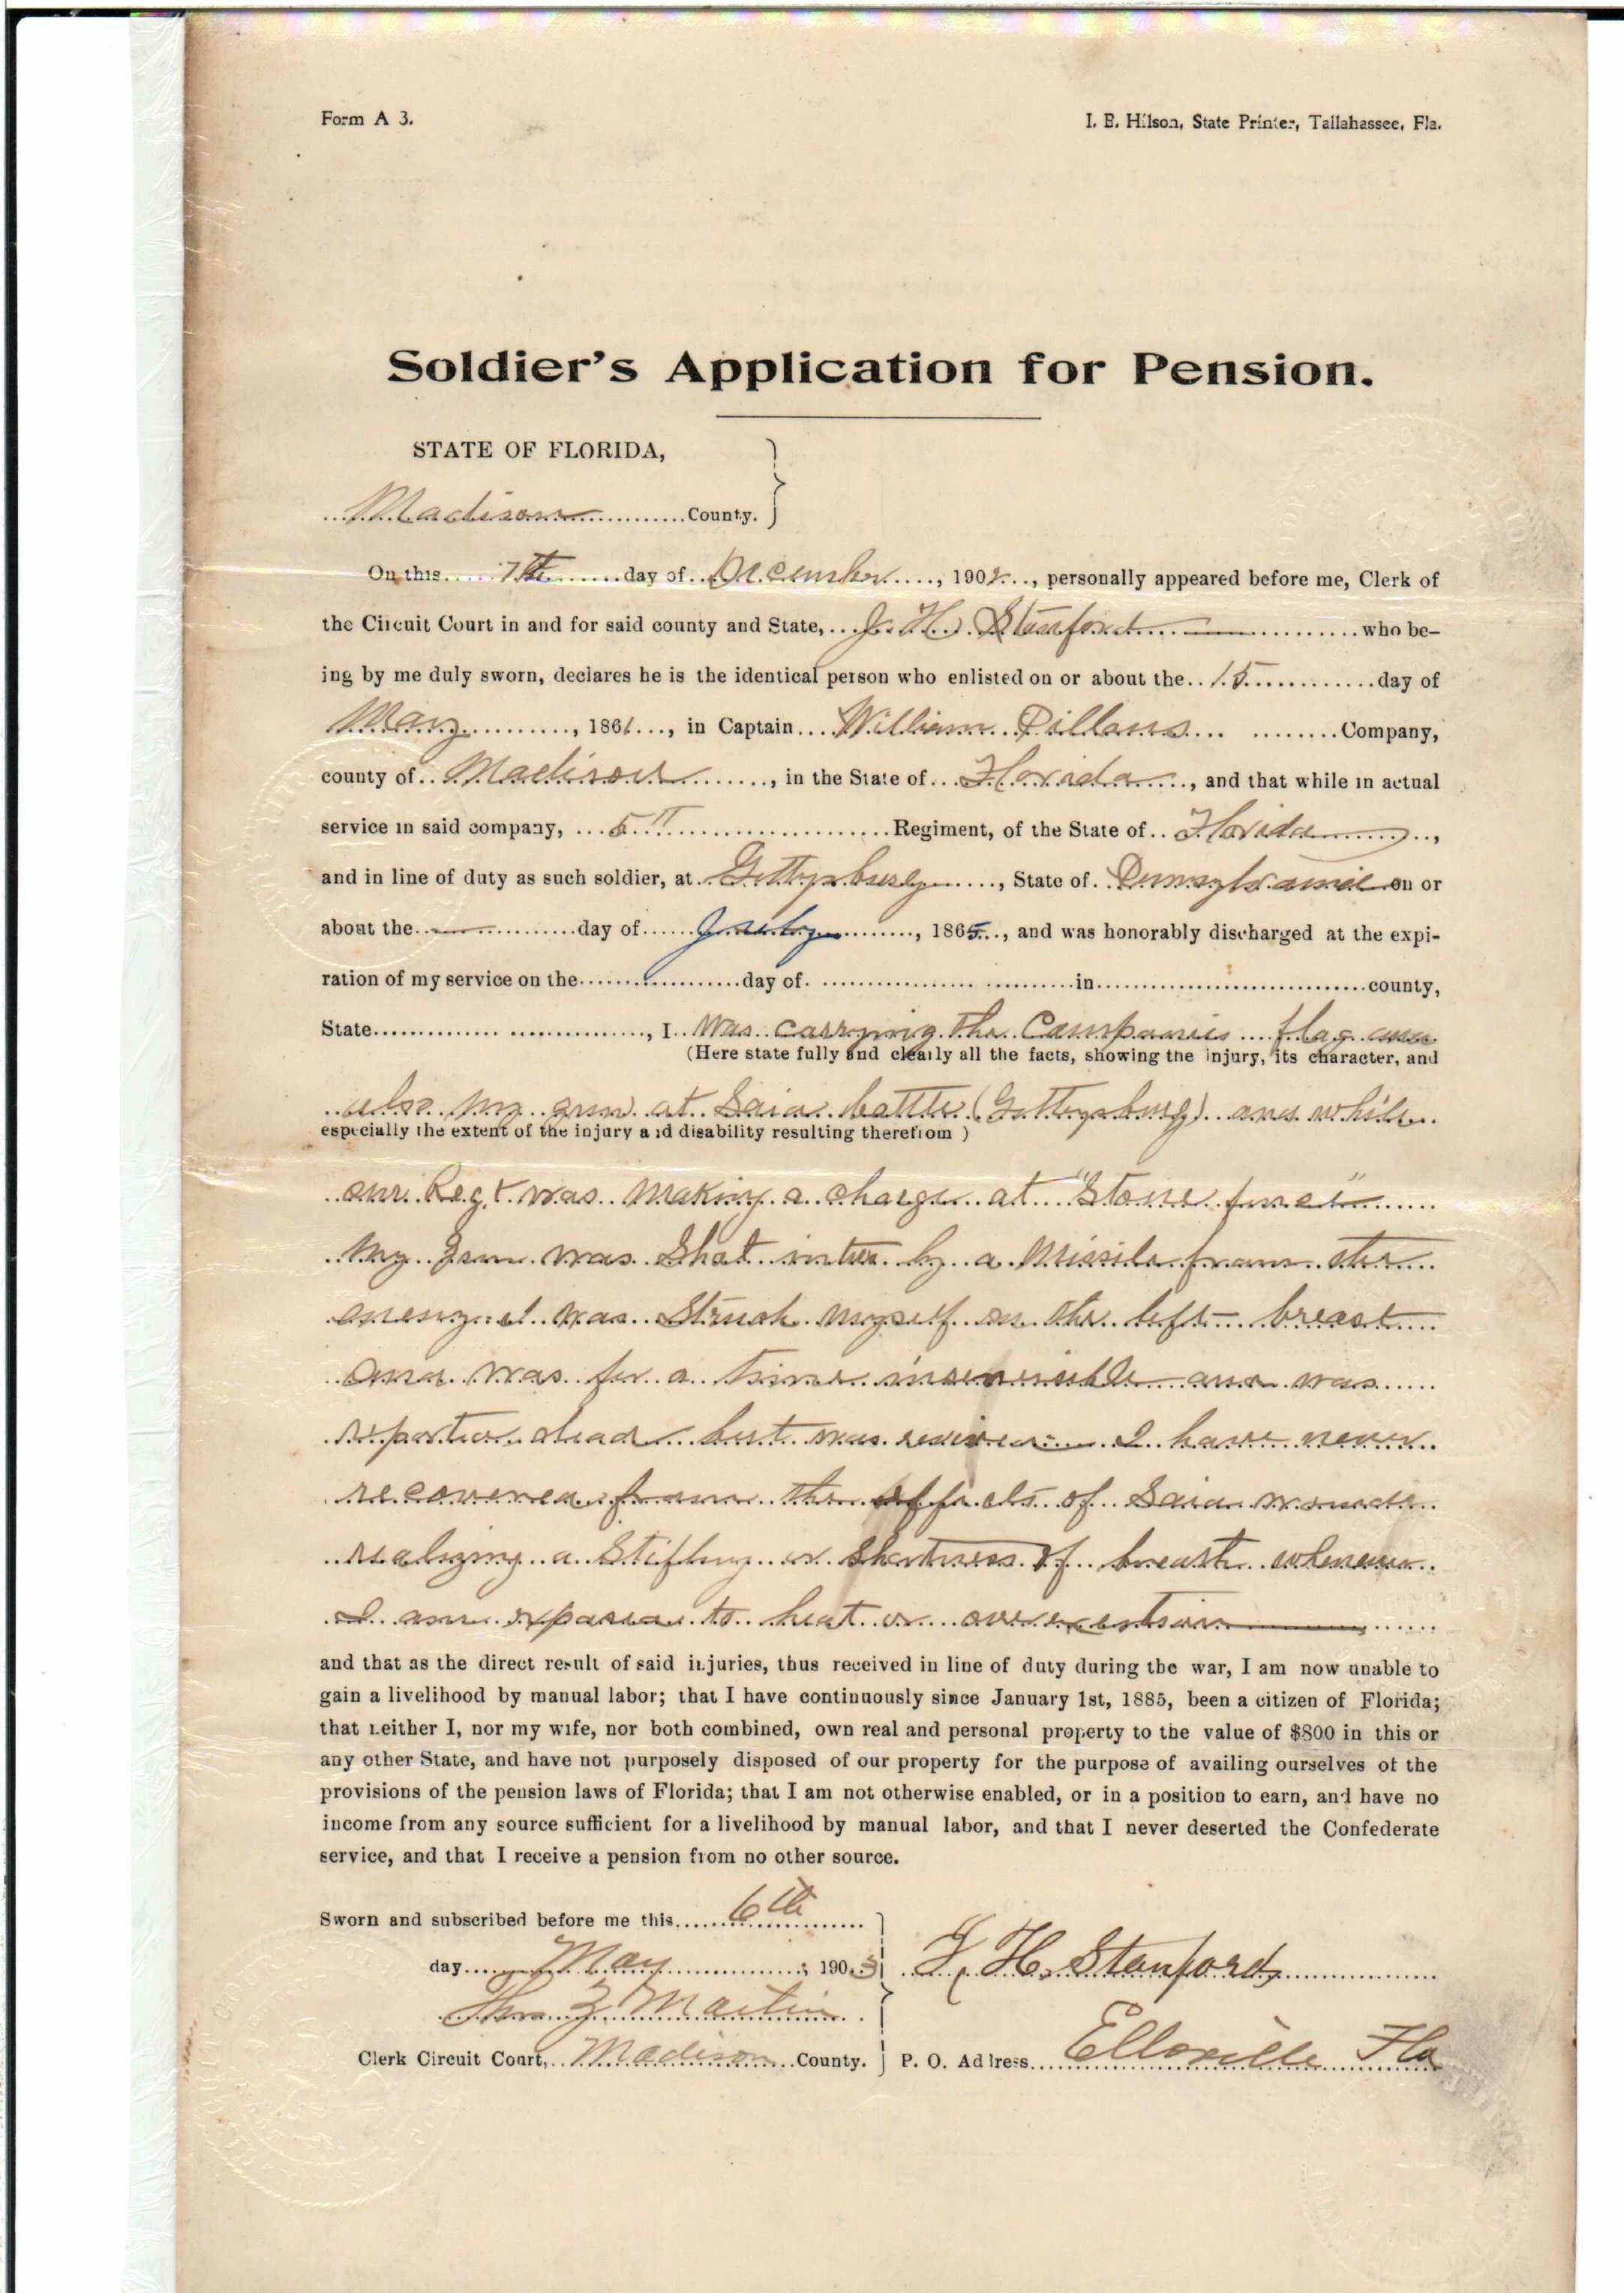 Form A 3.
I. B. Hilson, State Printer, Tallahassee, Fla.
Soldier's Application for Pension.
STATE OF FLORIDA,
Madison County.
On this 7th day of December, 1902, personally appeared before me, Clerk of
the Circuit Court in and for said county and State, J. H. Stanford who be-
ing by me duly sworn, declares he is the identical person who enlisted on or about the 15 day of
May, 1861, in Captain William Company,
county of Madison, in the State of Florida, and that while in actual
service in said company, 5 Regiment, of the State of Florida,
and in line of duty as such soldier, at Gettysburg, State of Pennsylvania on or
about the day of July, 1865, and was honorably discharged at the expi-
ration of my service on the day of in county,
State, I Was carrying the Companies flag and
(Here state fully and clearly all the facts, showing the injury, its character, and
also my gun at Said battle (Gettysburg) and while
especially the extent of the injury and disability resulting therefrom )
our Regt was making a charge at "Stone fence"
My Gun was Shot in two by a Missile from the
enemy I was Struck myself on the left breast
and was for a time insensible and was
reported dead but was revived I have never
recovered from the effects of Said wounds
realizing a Stifling or Shortness of breath whenever
I am exposed to heat or overexertion
and that as the direct result of said injuries, thus received in line of duty during the war, I am now unable to
gain a livelihood by manual labor; that I have continuously since January 1st, 1885, been a citizen of Florida;
that neither I, nor my wife, nor both combined, own real and personal property to the value of $800 in this or
any other State, and have not purposely disposed of our property for the purpose of availing ourselves of the
provisions of the pension laws of Florida; that I am not otherwise enabled, or in a position to earn, and have no
income from any source sufficient for a livelihood by manual labor, and that I never deserted the Confederate
service, and that I receive a pension from no other source.
Sworn and subscribed before me this 6th
day May, 1903
J. H. Stanford
Martin
Clerk Circuit Court, Madison County.
P. O. Address Ellaville Fla